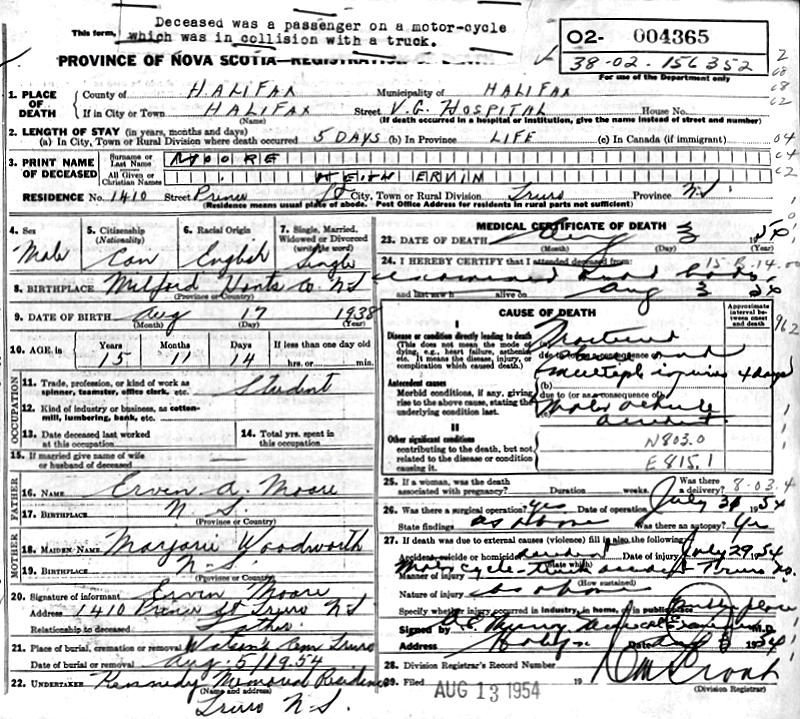 Deceased was a passenger on a motor-cycle
This form, which was in collision with a truck.
O2- 004365
38-02. 156352
For use of the Department only
PROVINCE OF NOVA SCOTIA—REGISTRATION OF DEATH
1. PLACE OF DEATH County of HALIFAX Municipality of HALIFAX
If in City or Town HALIFAX Street V.G. HOSPITAL House No.
(Name) (If death occurred in a hospital or institution, give the name instead of street and number)
2. LENGTH OF STAY (in years, months and days)
(a) In City, Town or Rural Division where death occurred 5 DAYS (b) In Province LIFE (c) In Canada (if immigrant)
3. PRINT NAME OF DECEASED Surname or Last Name MOORE
All Given or Christian Names KEITH ERVIN
RESIDENCE No. 1410 Street Prince St City, Town or Rural Division Truro Province N.S.
(Residence means usual place of abode. Post Office Address for residents in rural parts not sufficient)
4. Sex Male
5. Citizenship (Nationality) Can
6. Racial Origin English
7. Single, Married, Widowed or Divorced (write the word) Single
8. BIRTHPLACE Milford Hants Co NS
(Province or Country)
9. DATE OF BIRTH Aug 17 1938
(Month) (Day) (Year)
10. AGE in Years 15 Months 11 Days 14 If less than one day old hrs. or min.
OCCUPATION
11. Trade, profession, or kind of work as spinner, teamster, office clerk, etc. Student
12. Kind of industry or business, as cotton-mill, lumbering, bank, etc.
13. Date deceased last worked at this occupation
14. Total yrs. spent in this occupation
15. If married give name of wife or husband of deceased
FATHER
16. NAME Ervin A. Moore
17. BIRTHPLACE N S.
(Province or Country)
MOTHER
18. MAIDEN NAME Marjorie Woodworth
19. BIRTHPLACE N-S.
(Province or Country)
20. Signature of informant Ervin Moore
Address 1410 Prince St Truro NS
Relationship to deceased Father
21. Place of burial, cremation or removal Cem Truro
Date of burial or removal Aug. 5/1954
22. UNDERTAKER Kennedy Memorial Residence
(Name and address)
Truro N-S.
MEDICAL CERTIFICATE OF DEATH
23. DATE OF DEATH Aug 3 1954
(Month) (Day) (Year)
24. I HEREBY CERTIFY that I attended deceased from:
examined dead body
and last saw h alive on Aug 3 54
CAUSE OF DEATH
Approximate interval between onset and death
I
Disease or condition directly leading to death
(This does not mean the mode of dying, e.g., heart failure, asthenia, etc. It means the disease, injury, or complication which caused death.
due to (or as a consequence of)
multiple injuries 4 days
Antecedent causes
Morbid conditions, if any, giving rise to the above cause, stating the underlying condition last.
(b)
due to (or as a consequence of)
Motor vehicle
accident
II
Other significant conditions
contributing to the death, but not related to the disease or condition causing it.
N803.0
E815.1
25. If a woman, was the death associated with pregnancy? Duration weeks. Was there a delivery? 8-03.4
26. Was there a surgical operation? yes July 31 1954
State findings as above Was there an autopsy? Yes
27. If death was due to external causes (violence) fill in also the following:
Accident, suicide or homicide accident Date of injury July 29 1954
(State which)
Manner of injury Motorcycle-truck accident Truro NS.
(How sustained)
Nature of injury as above
Specify whether injury occurred in industry, in home, or in public place Public place
Signed by M.D.
Address Date Aug 1954
28. Division Registrar's Record Number
29. Filed AUG 13 1954 19
(Division Registrar)